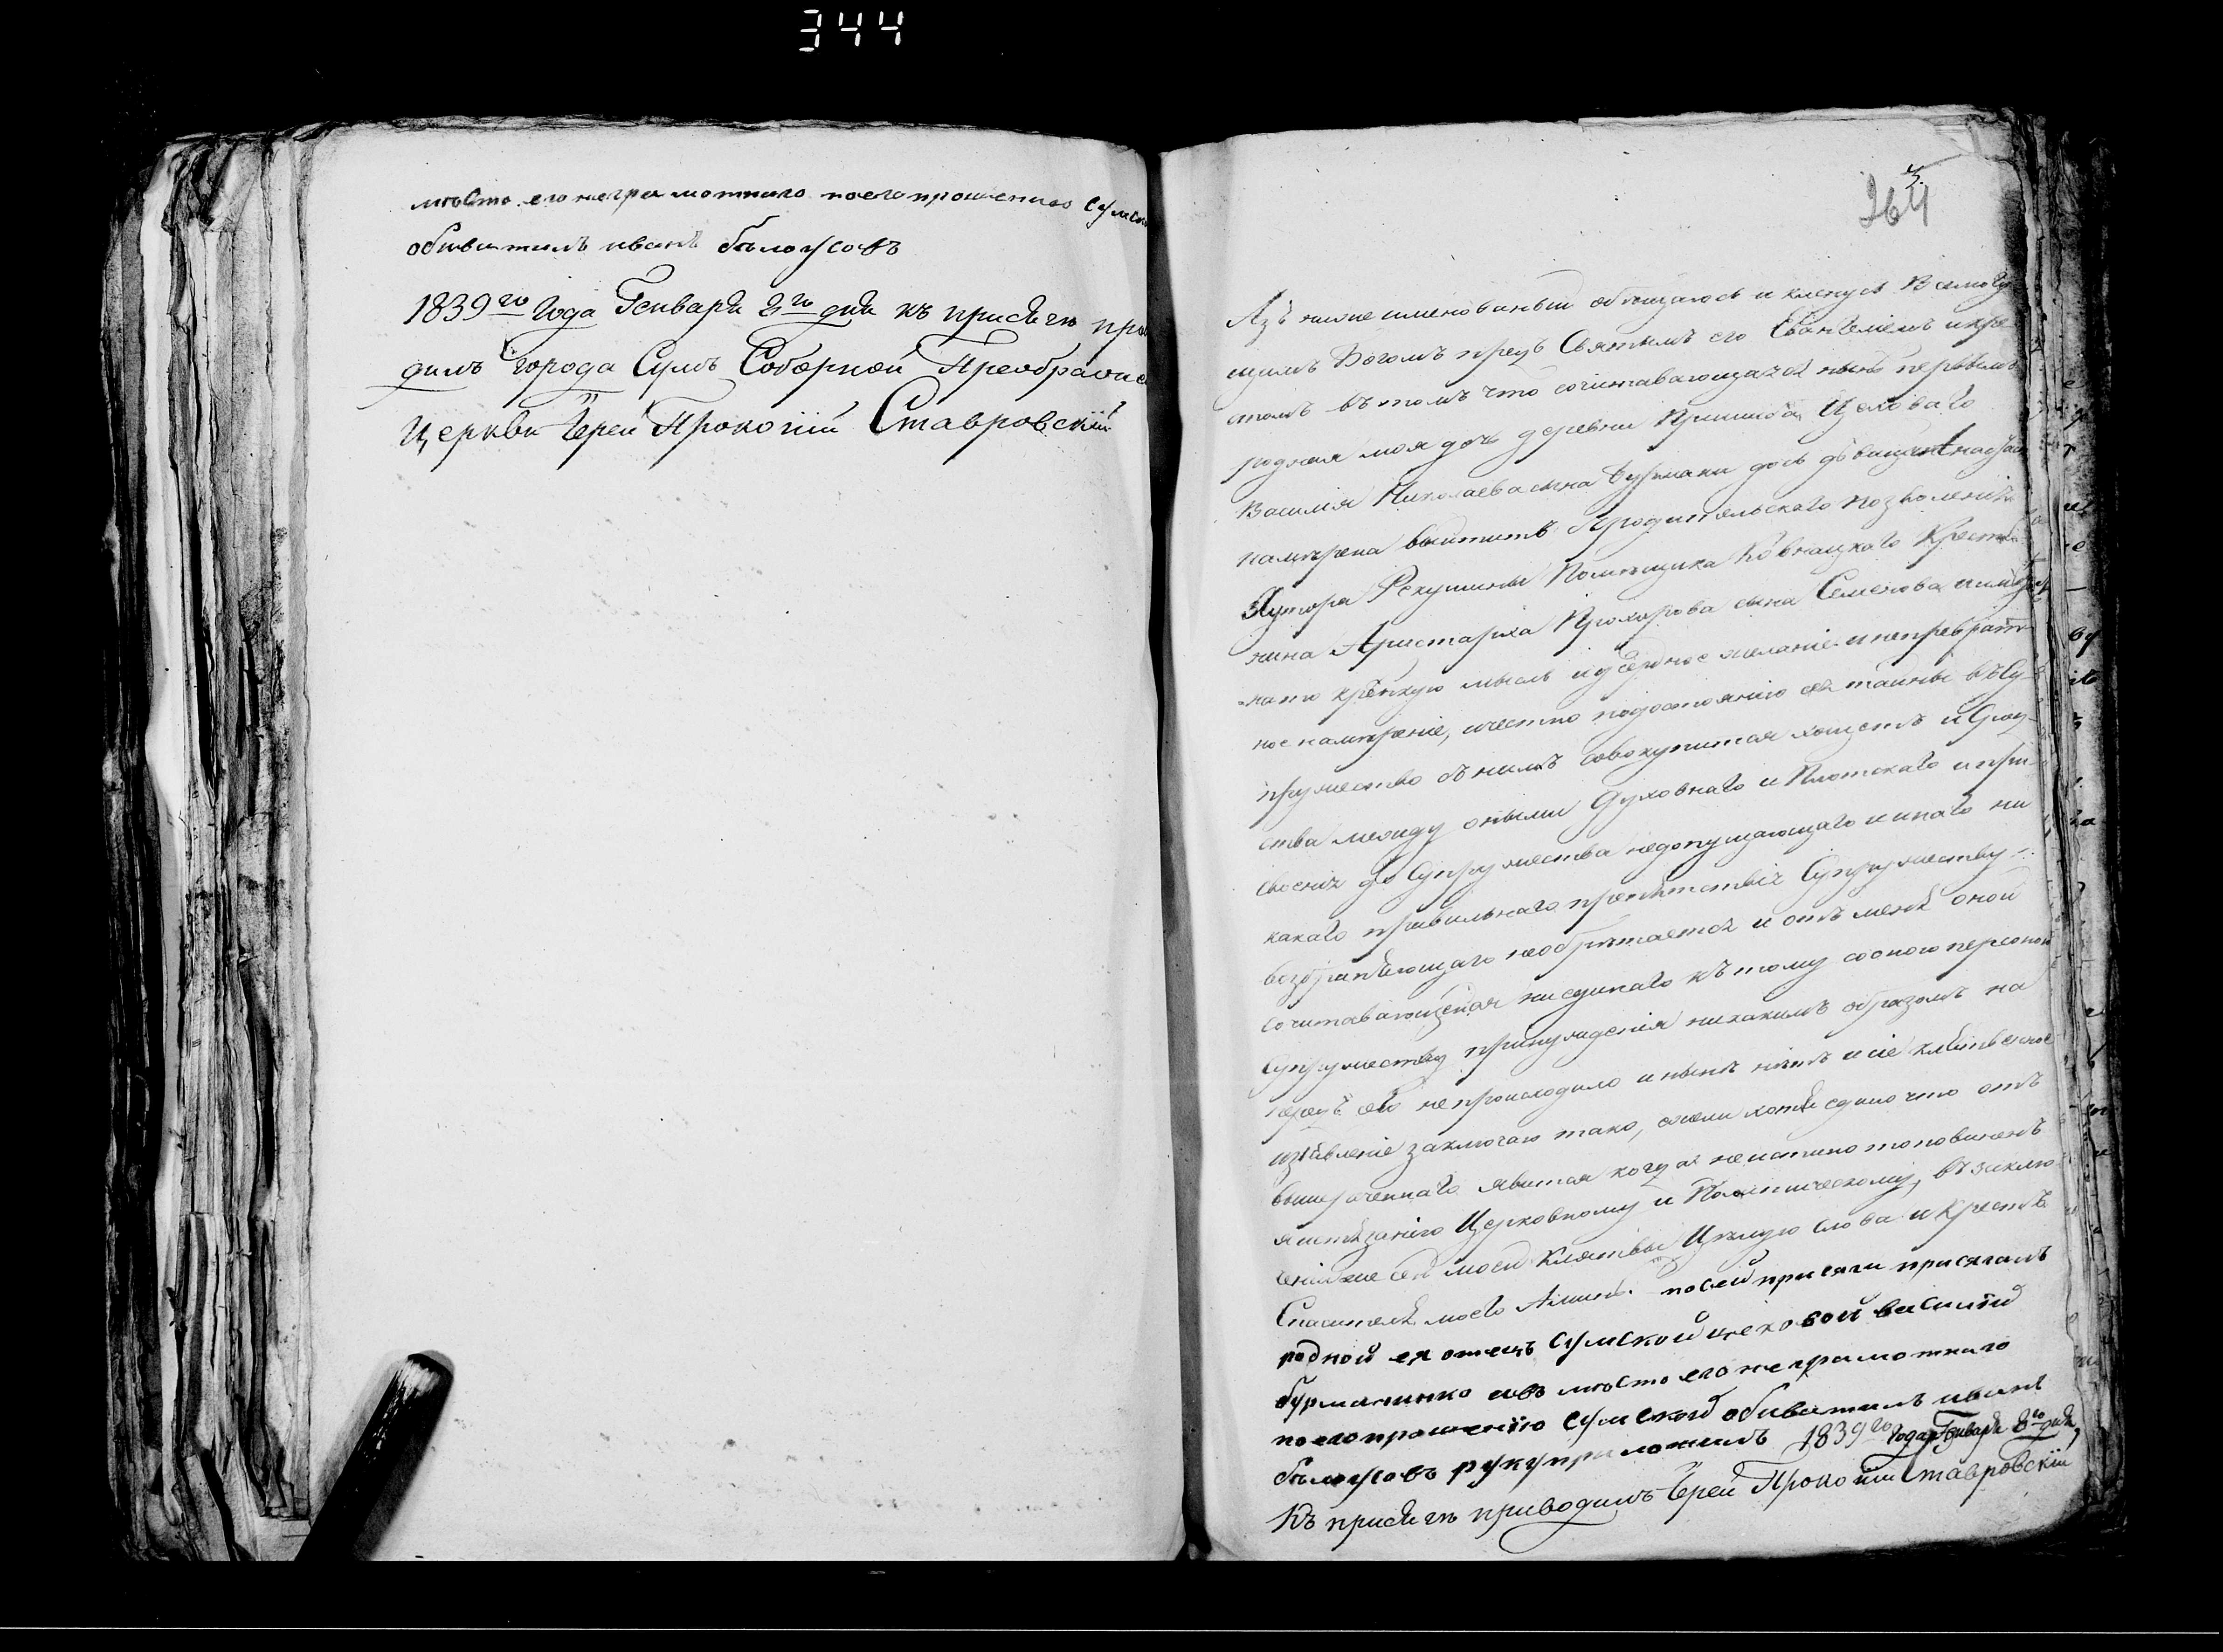 344
мѣсто его неграмотнаго поегопрошению сумск
обиватиль иванъ билоусовъ
1839го года Генваря 8го дня къ присягѣ при
дилъ города Сумъ Соборной Преображе
Церкви Іерей Прокопій Ставровскій
3.
264
Азъ нижеименованный обещаюсь и кленусь Всемогу
щимъ Богомъ предъ Святымъ его Евангелiемъ икре
стомъ въ томъ что сочитавающаяся нынѣ первымъ
родная моя дочь деревни Цеховаго
Василія Николаева сына дочь дѣвица
намѣрена вступить Сродительскаго позволенія
Хутора Помѣщика Крестья
нина Аристарха Прохорова сына Семенова имѣя
нато крѣпкую мысль иусердное желаніе инепревратн
ное намѣреніе, ичестно подостоянію сея тайны въ Су-
пружество снимъ совокупитая хощетъ и Срод-
ства между оными Духовнаго и Плотскаго и при-
своенія до Супружества недопущающаго и инаго ни
какаго правильнаго препятствія Супружеству
возбраняющаго необрѣтается и отъ меня оной
сочитавающейся ниединаго къ тому сооною персоною
Супружеству принужденія никакимъ образомъ на
предъ сего непроисходило инынѣ нѣтъ исіе клятвенное
изъявленіе заключаю тако, ежели хотя едино что отъ
вышереченнаго явитая когда неистино топовиненъ
я истязанію Церковному и Политическому, въ заклю
ченіиже сей моей Клятвы Цѣлую слова и Крестъ
Спасителя моего Аминь. посей присяги присягалъ
родной ея отецъ сумской цеховой василій
бурманенко авъ мѣсто его неграмотнаго
поегопрошению сумской обиватиль иванъ
билоусовъ рукуприложилъ 1839го года Генваря 8го дня,
Къ присягѣ приводилъ Іерей Прокопій Ставровскій